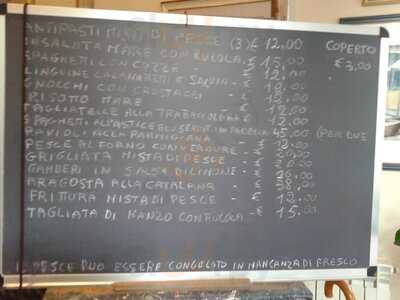 ANTIPASTI MISTI DI PESCE (3) € 12.00 COPERTO
INSALATA MARE CON RUCOLA - € 15,00 € 3,00
SPAGHETTI CON COZZE - € 12.00
LINGUINE CALAMARETTI E SALVIA - €
GNOCCHI CON CROSTACEI - € 12.00
RISOTTO MARE - €
TAGLIATELLE ALLA TRABACCOLARA € 12.00
SPAGHETTI ALL'ASTICE E CUSERVITI IN PADELLA 45.00 (PER DUE
RAVIOLI ALLA PARMIGIANA - € 12.00
PESCE AL FORNO CON VERDURE - € 20,00
GRIGLIATA MISTA DI PESCE - € 20.00
GAMBERI IN SALSA DI LIMONE - € 26.00
ARAGOSTA ALLA CATALANA - € 38,00
FRITTURA MISTA DI PESCE - € 12.00
TAGLIATA DI MANZO CON RUCOLA - € 15.00
IL PESCE PUO ESSERE CONGELATO IN MANCANZA DI FRESCO